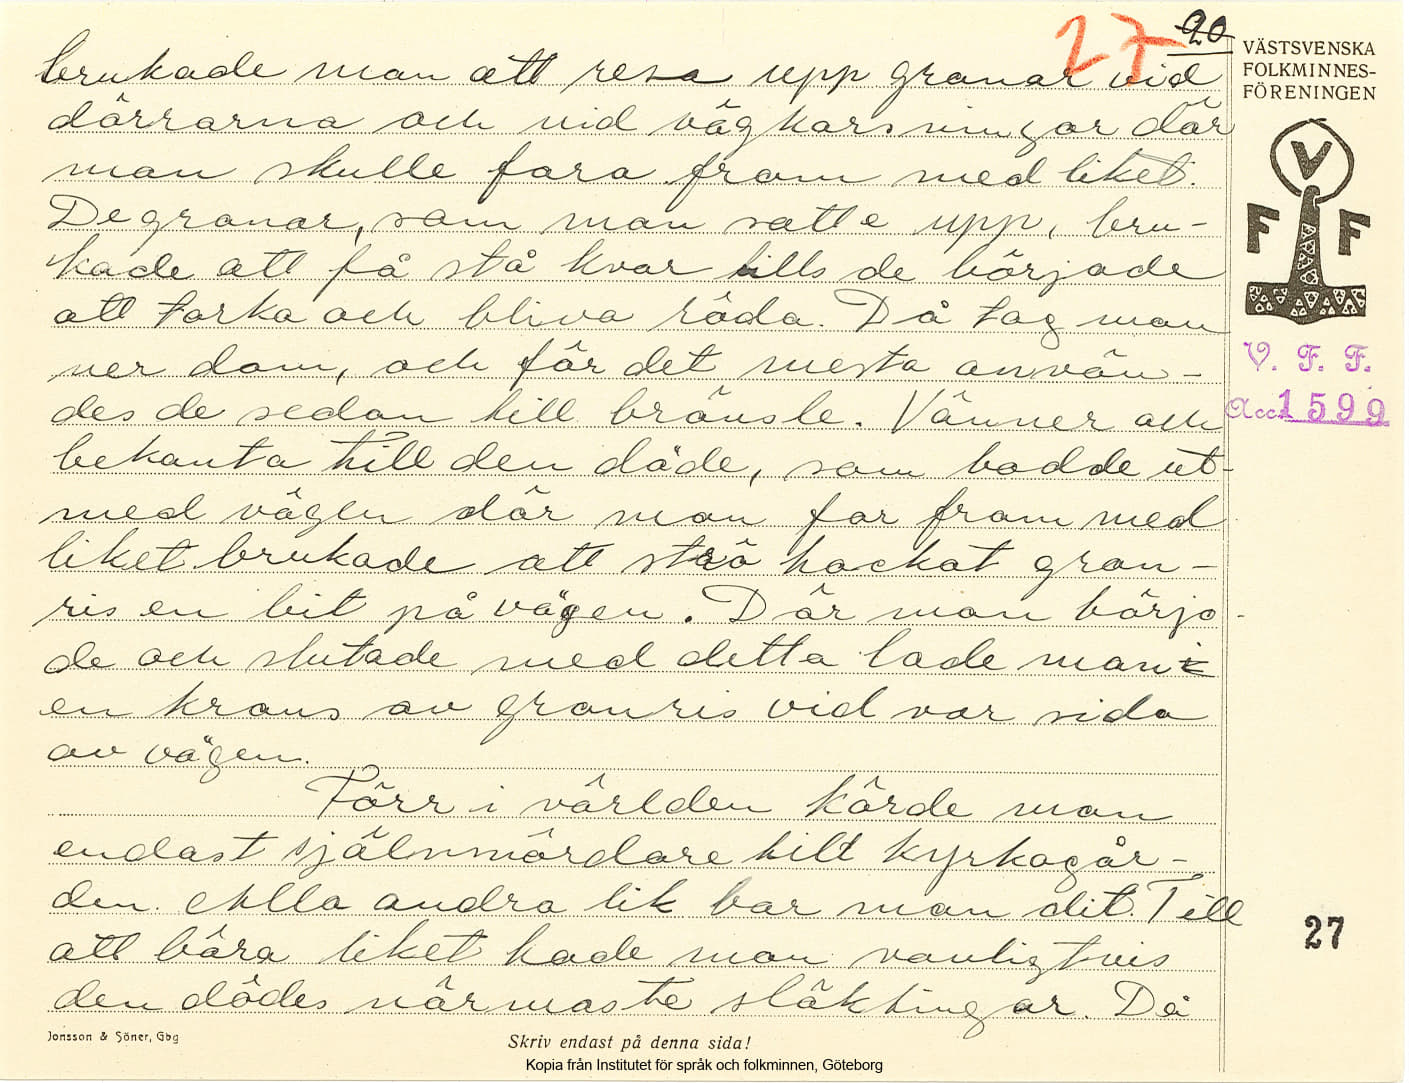 27 20
VÄSTSVENSKA
FOLKMINNES-
FÖRENINGEN
brukade man att resa upp granar vid
dörrarna och vid vägkorsningar där
man skulle fara fram med liket.
De granar, som man satte upp, bru-
kade att få stå kvar tills de började
att torka och bliva röda. Då tog man
ner dom, och för det mesta använ-
des de sedan till bränsle. Vänner och
bekanta till den döde, som bodde ut-
med vägen där man for fram med
liket brukade att strö hackat gran-
ris en bit på vägen. Där man börja-
de och slutade med detta lade man
en krans av granris vid var sida
av vägen.
Förr i världen körde man
endast självmördare till kyrkogår-
den. Alla andra lik bar man dit. Till
att bära liket hade man vanligtvis
den dödes närmaste släktingar. De
V
F F
V. F. F.
Acc. 1599
27
Jonsson & Söner, Gbg
Skriv endast på denna sida!
Kopia från Institutet för språk och folkminnen, Göteborg